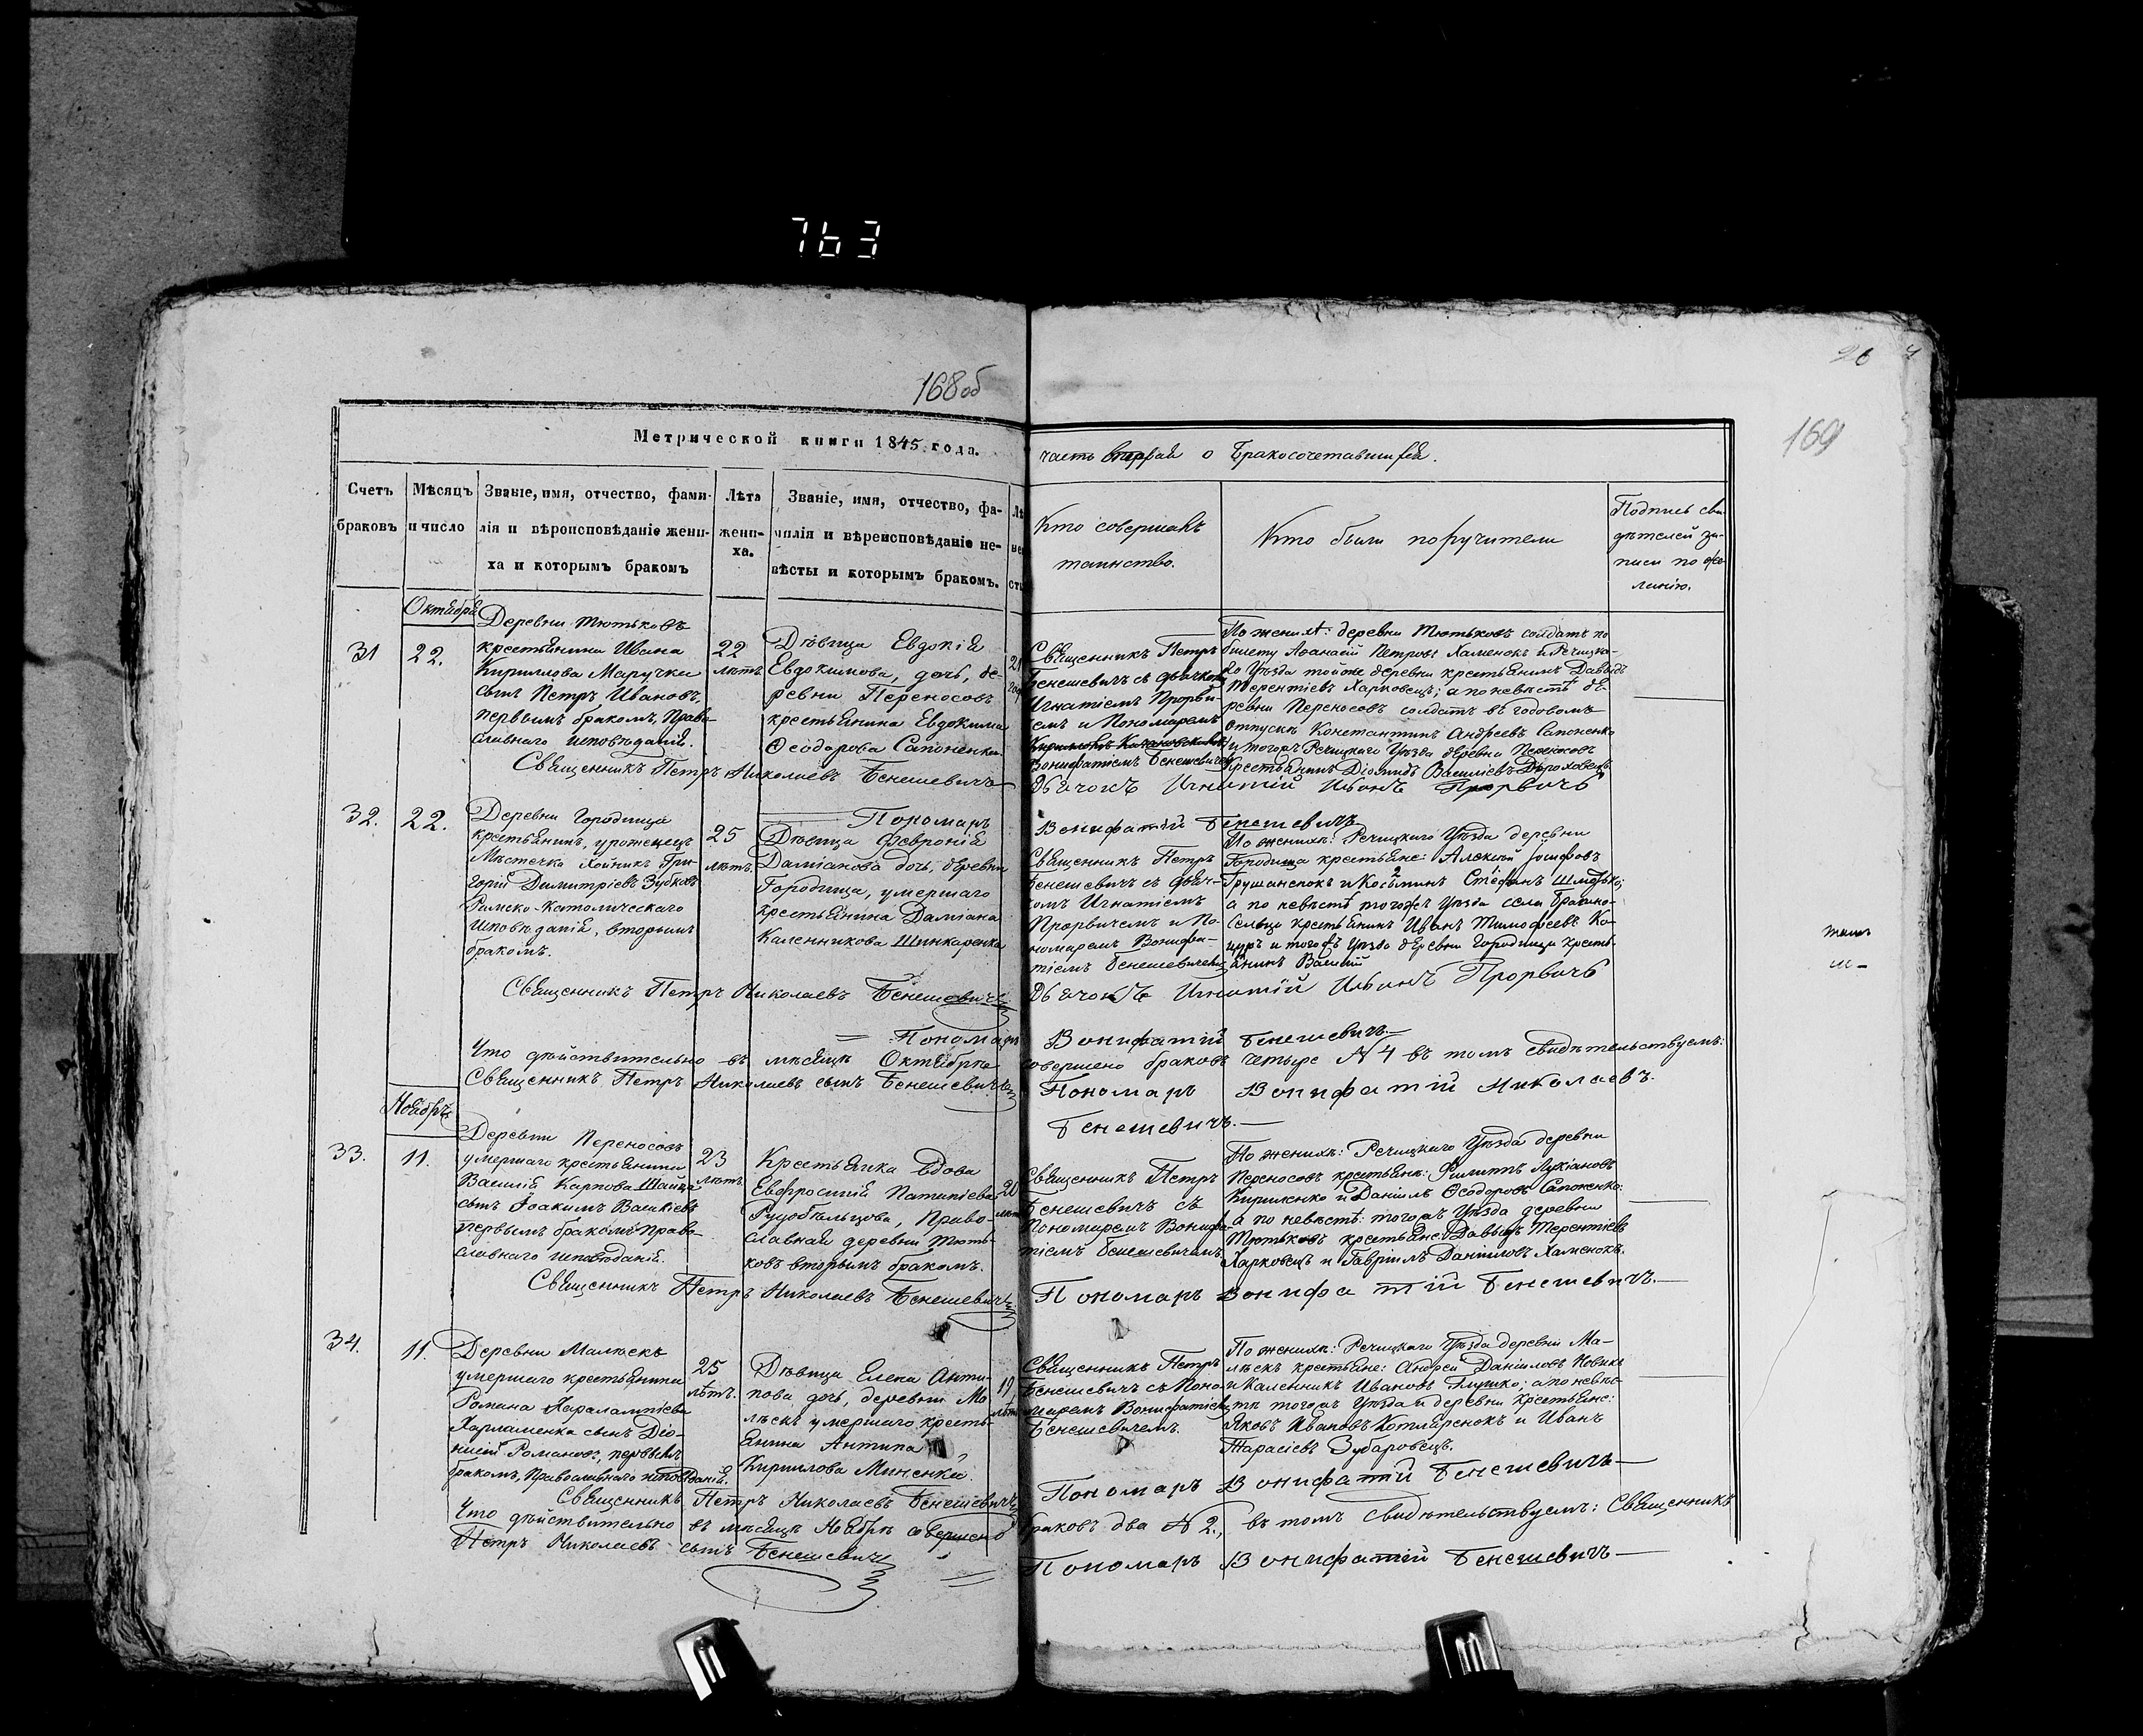 763
168об
26 4
169
Метрической книги 1845 года.
часть вторая о Бракосочетавшихся.
Счетъ браковъ
Мѣсяцъ и число
Званіе, имя, отчество, фами-
лія и вѣроисповѣданіе жени-
ха и которымъ бракомъ
Лѣта
жени-
ха.
Званіе, имя, отчество, фа-
милія и вѣроисповѣданіе не-
вѣсты и которымъ бракомъ.
Кто совершалъ
таинство.
Кто были поручители
Подпись сви-
дѣтелей за-
писи по же-
ланію.
Октября
31
22.
Деревни Тютьковъ
крестьянина Ивана
Кириллова Маручки
сынъ Петръ Ивановъ,
первымъ бракомъ, Право-
славнаго исповѣданія.
22
лѣтъ
Дѣвица Евдокія
Евдокимова, дочь, де-
ревни Переносовъ
крестьянина Евдокима
Ѳеодорова Сапоненка
Священникъ Петръ
Бенешевичъ съ дьячкомъ
Игнатіемъ Прорви-
чемъ и Пономаремъ
Вонифатіемъ Бенешевичемъ
По женихѣ: деревни Тютьковъ солдатъ по
билету Аѳанасій Петровъ Хаменокъ и Рѣчицка-
го Уѣзда тойже деревни крестьянинъ Давыдъ
Терентіевъ Харковецъ; а по невѣстѣ де-
ревни Переносовъ солдатъ въ годовомъ
отпускѣ Константинъ Андреевъ Сапоненко
и тогожъ Речицкаго Уѣзда деревни Переносовъ
крестьянинъ Діомидъ Василіевъ Дороховецъ
Священникъ Петръ Николаевъ Бенешевичъ
Дьячокъ Игнатій Ивановъ Прорвичъ
Пономаръ Вонифатій Бенешевичъ
32.
22.
Деревни Городища
крестьянинъ, уроженецъ
Мѣстечка Хойникъ Гри-
горій Димитріевъ Зубковъ
Римско-Католическаго
Исповѣданія, вторымъ
бракомъ.
25
лѣтъ.
Дѣвица Февронія
Даміанова дочь, деревни
Городища, умершаго
крестьянина Даміана
Каленникова Шинкаренка
Священникъ Петръ
Бенешевичъ съ дьяч-
комъ Игнатіемъ
Прорвичемъ и По-
номаремъ Вонифа-
тіемъ Бенешевичемъ
По женихѣ: Речицкаго Уѣзда деревни
Городища крестьяне: Алексѣй Іосифовъ
Грушанскокъ и Стефанъ
а по невѣстѣ тогожъ Уѣзда села
крестьянинъ Иванъ Тимофеевъ Ко-
и тогожъ Уѣзда деревни Городища кресть-
янинъ Василій
Священникъ Петръ Николаевъ Бенешевичъ
Дьячокъ Игнатій Ивановъ Прорвичъ
Пономаръ Вонифатій Бенешевичъ
Что дѣйствительно въ мѣсяцѣ Октябрѣ совершено браковъ четыре № 4 въ томъ свидѣтельствуемъ:
Священникъ Петръ Николаевъ сынъ Бенешевичъ Пономаръ Вонифатій Николаевъ
Бенешевичъ.
Ноябрь
33.
11.
Деревни Переносовъ
умершаго крестьянина
Василія Карпова Шайца
сынъ Іоакимъ Василіевъ
первымъ бракомъ Право-
славнаго исповѣданія.
23
лѣтъ
Крестьянка вдова
Евфросинія Патапіева
Рудобѣльцова, Право-
славная деревни Тють-
ковъ вторымъ бракомъ.
20
лѣтъ
Священникъ Петръ
Бенешевичъ съ
Пономаремъ Вонифа-
тіемъ Бенешевичемъ.
По женихѣ: Речицкаго Уѣзда деревни
Переносовъ крестьяне: Филиппъ Лукіановъ
Кириленко и Даніилъ Ѳеодоровъ Сапоненко:
а по невѣстѣ: тогожъ Уѣзда деревни
Тютьковъ крестьяне Давыдъ Терентіевъ
Харковецъ и Гавріилъ Данииловъ Хаменокъ.
Священникъ Петръ Николаевъ Бенешевичъ
Пономаръ Вонифатій Бенешевичъ.
34.
11.
Деревни Малѣекъ
умершаго крестьянина
Романа Харалампіева
Харламенка сынъ Діо-
нисій Романовъ, первымъ
бракомъ, Православнаго исповѣданія.
25
лѣтъ.
Дѣвица Елена Анти-
пова дочь, деревни Ма-
лѣекъ умершаго кресть-
янина Антипа
Кириллова Миненка.
19
лѣтъ
Священникъ Петръ
Бенешевичъ съ Поно-
маремъ Вонифатіемъ
Бенешевичемъ.
По женихѣ: Речицкаго Уѣзда деревни Ма-
лѣекъ крестьяне: Андрей Данииловъ Новикъ
и Каленникъ Ивановъ Глушко; а по невѣ-
стѣ тогожъ Уѣзда и деревни крестьяне:
Яковъ Ивановъ Котляренокъ и Иванъ
Тарасіевъ Зубаровецъ.
Священникъ Петръ Николаевъ Бенешевичъ
Пономаръ Вонифатій Бенешевичъ
Что дѣйствительно въ мѣсяцѣ Ноябрѣ совершено браковъ два № 2., въ томъ свидѣтельствуемъ: Священникъ
Петръ Николаевъ сынъ Бенешевичъ Пономаръ Вонифатій Бенешевичъ